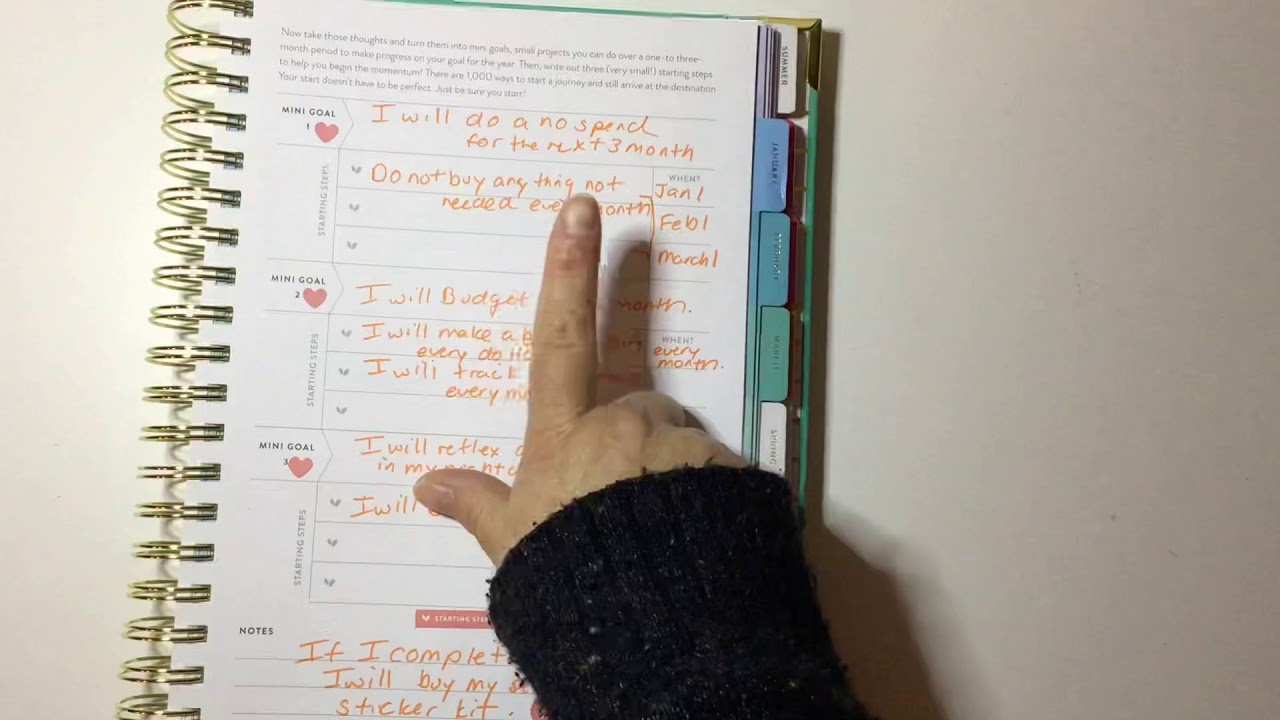 Now take those thoughts and turn them into mini goals, small projects you can do over a one-to three-
month period to make progress on your goal for the year. Then, write out three (very small!) starting steps
to help you begin the momentum! There are 1,000 ways to start a journey and still arrive at the destination
Your start doesn't have to be perfect. Just be sure you start!
MINI GOAL
1
I will do a no spend
for the next 3 month
STARTING STEPS
Do not buy any thing not
needed month
WHEN?
Jan 1
Feb 1
March 1
MINI GOAL
2
I will Budget month.
STARTING STEPS
I will make a
every
I will track
every
WHEN?
every
month.
MINI GOAL
3
I will reflex
in my
STARTING STEPS
I will
STARTING
NOTES
If I
I will buy my
sticker kit.
SUMMER
JANUARY
FEBRUARY
MARCH
SPRING